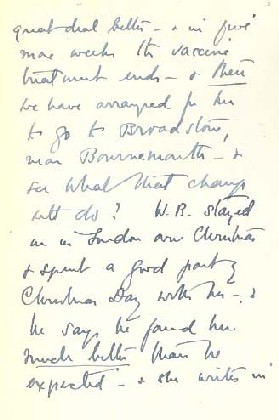 great deal better – & in five
more weeks the vaccine
treatment ends – & then
we have arranged for her
to go to Broadstone,
near Bournemouth – &
see what that change
will do? W.R. stayed
on in London over Christmas
& spent a good part of
Christmas Day with her – &
he says he found her
much better than he
expected – & she writes in